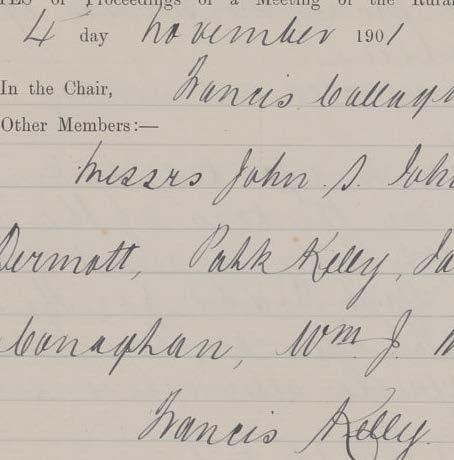 of Proceedings of a Meeting of the Rural
4 day November 1901
In the Chair, Francis Callagh
Other Members:—
Messrs John S.
Dermott, Patk Kelly,
Conaghan, Wm. J.
Francis Kelly.